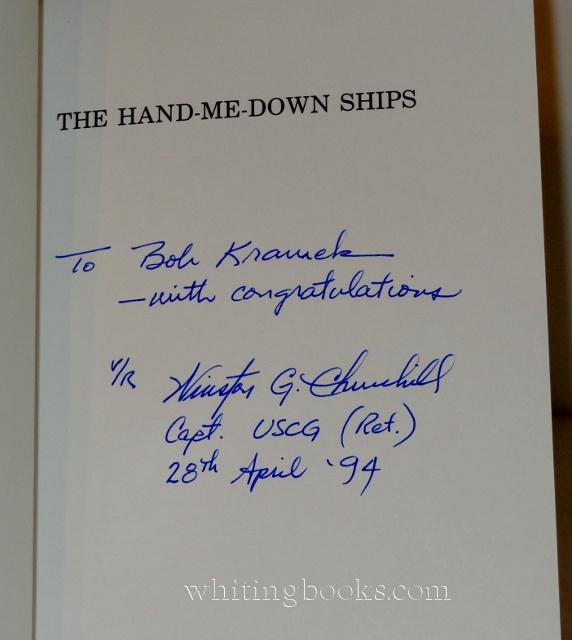 THE HAND-ME-DOWN SHIPS
To Bob Kramek
—with congratulations
V/R Winston G. Churchill
Capt. USCG (Ret.)
28th April '94
whitingbooks.com